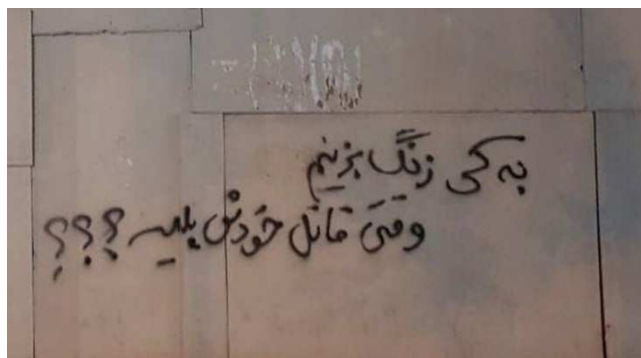 به کی زنگ بزنیم
وقتی قاتل خودش پلیسه ؟؟؟